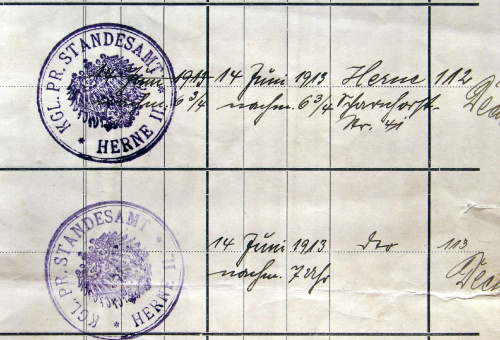 KGL. PR. STANDESAMT
* HERNE II *
14 Juni 1913 14 Juni 1913 Herne 112
nachm. 6 3/4 nachm. 6 3/4 Scharnhorststr.
Nr. 41
KGL. PR. STANDESAMT
* HERNE II *
14 Juni 1913 113
nachm. 7 Uhr